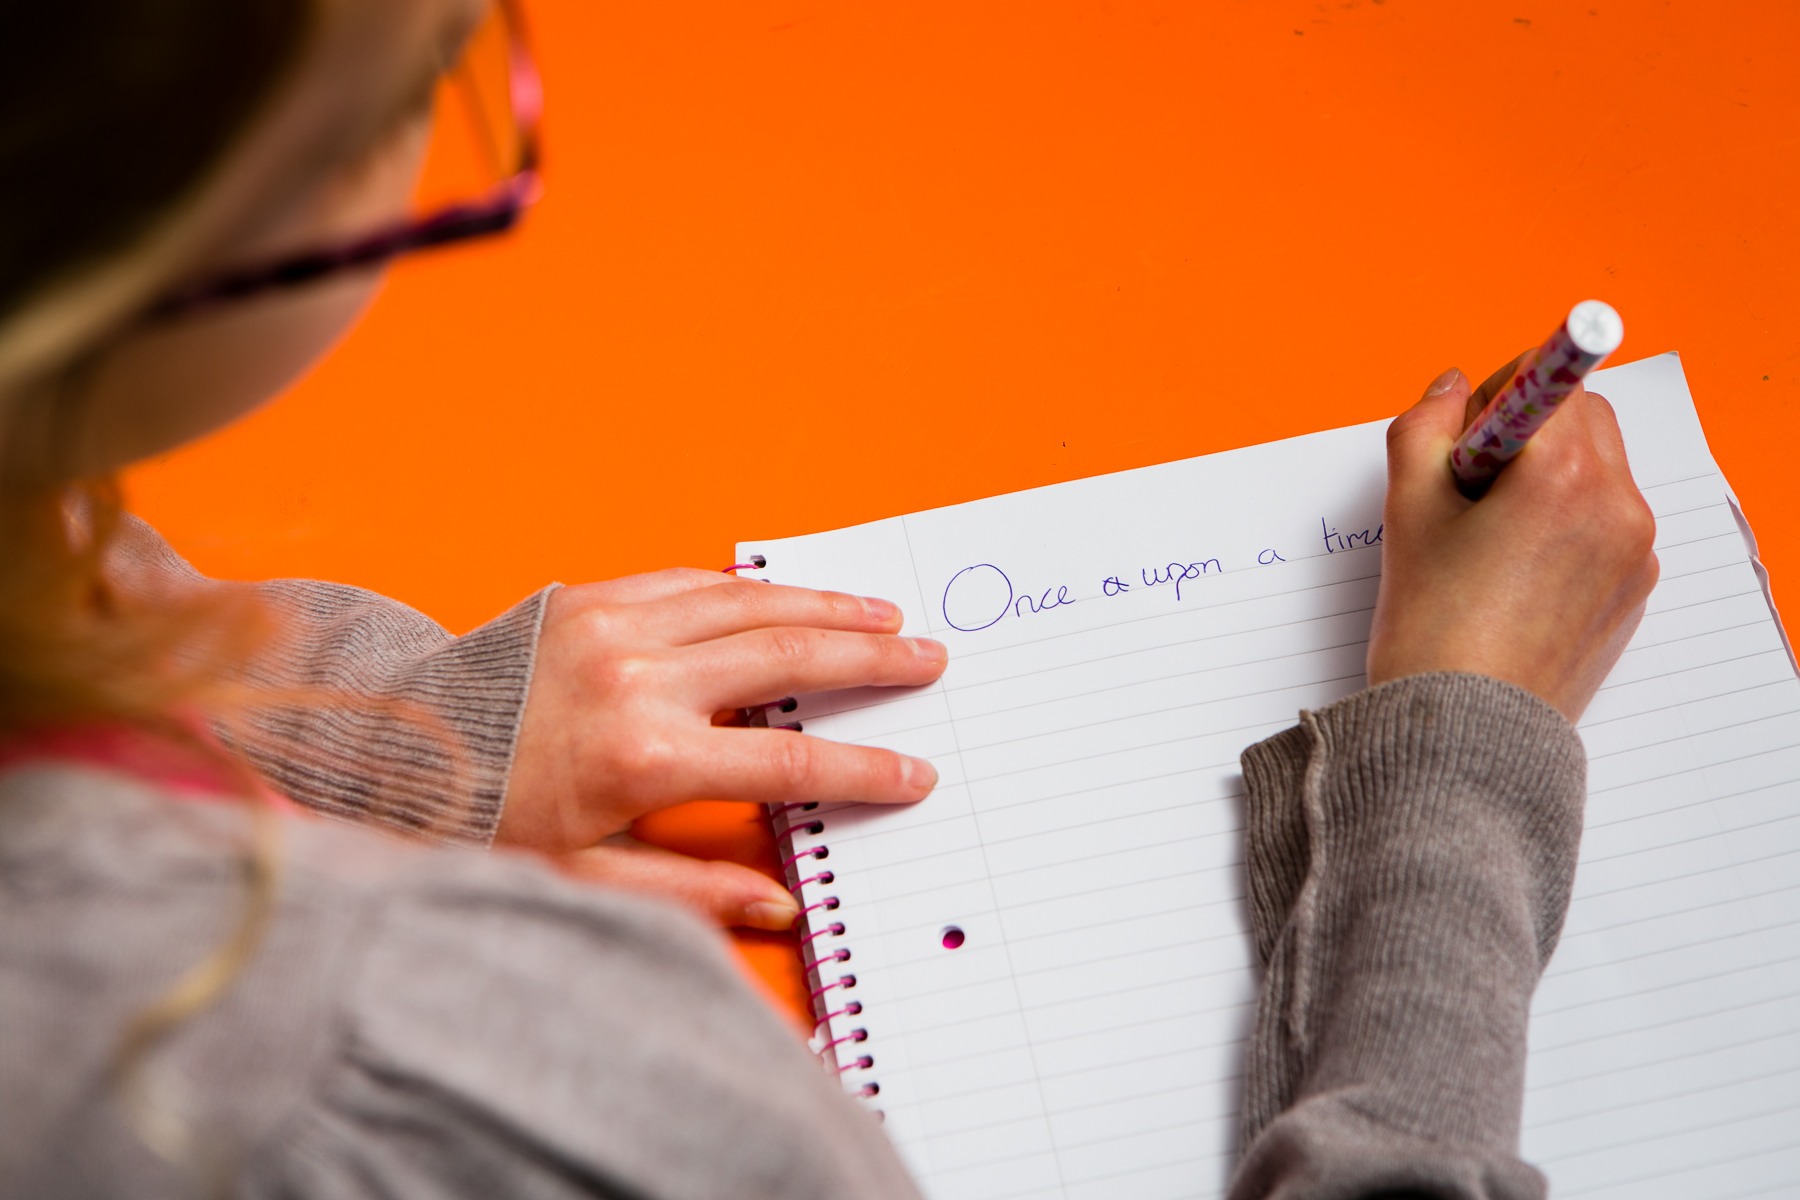 Once a upon a time